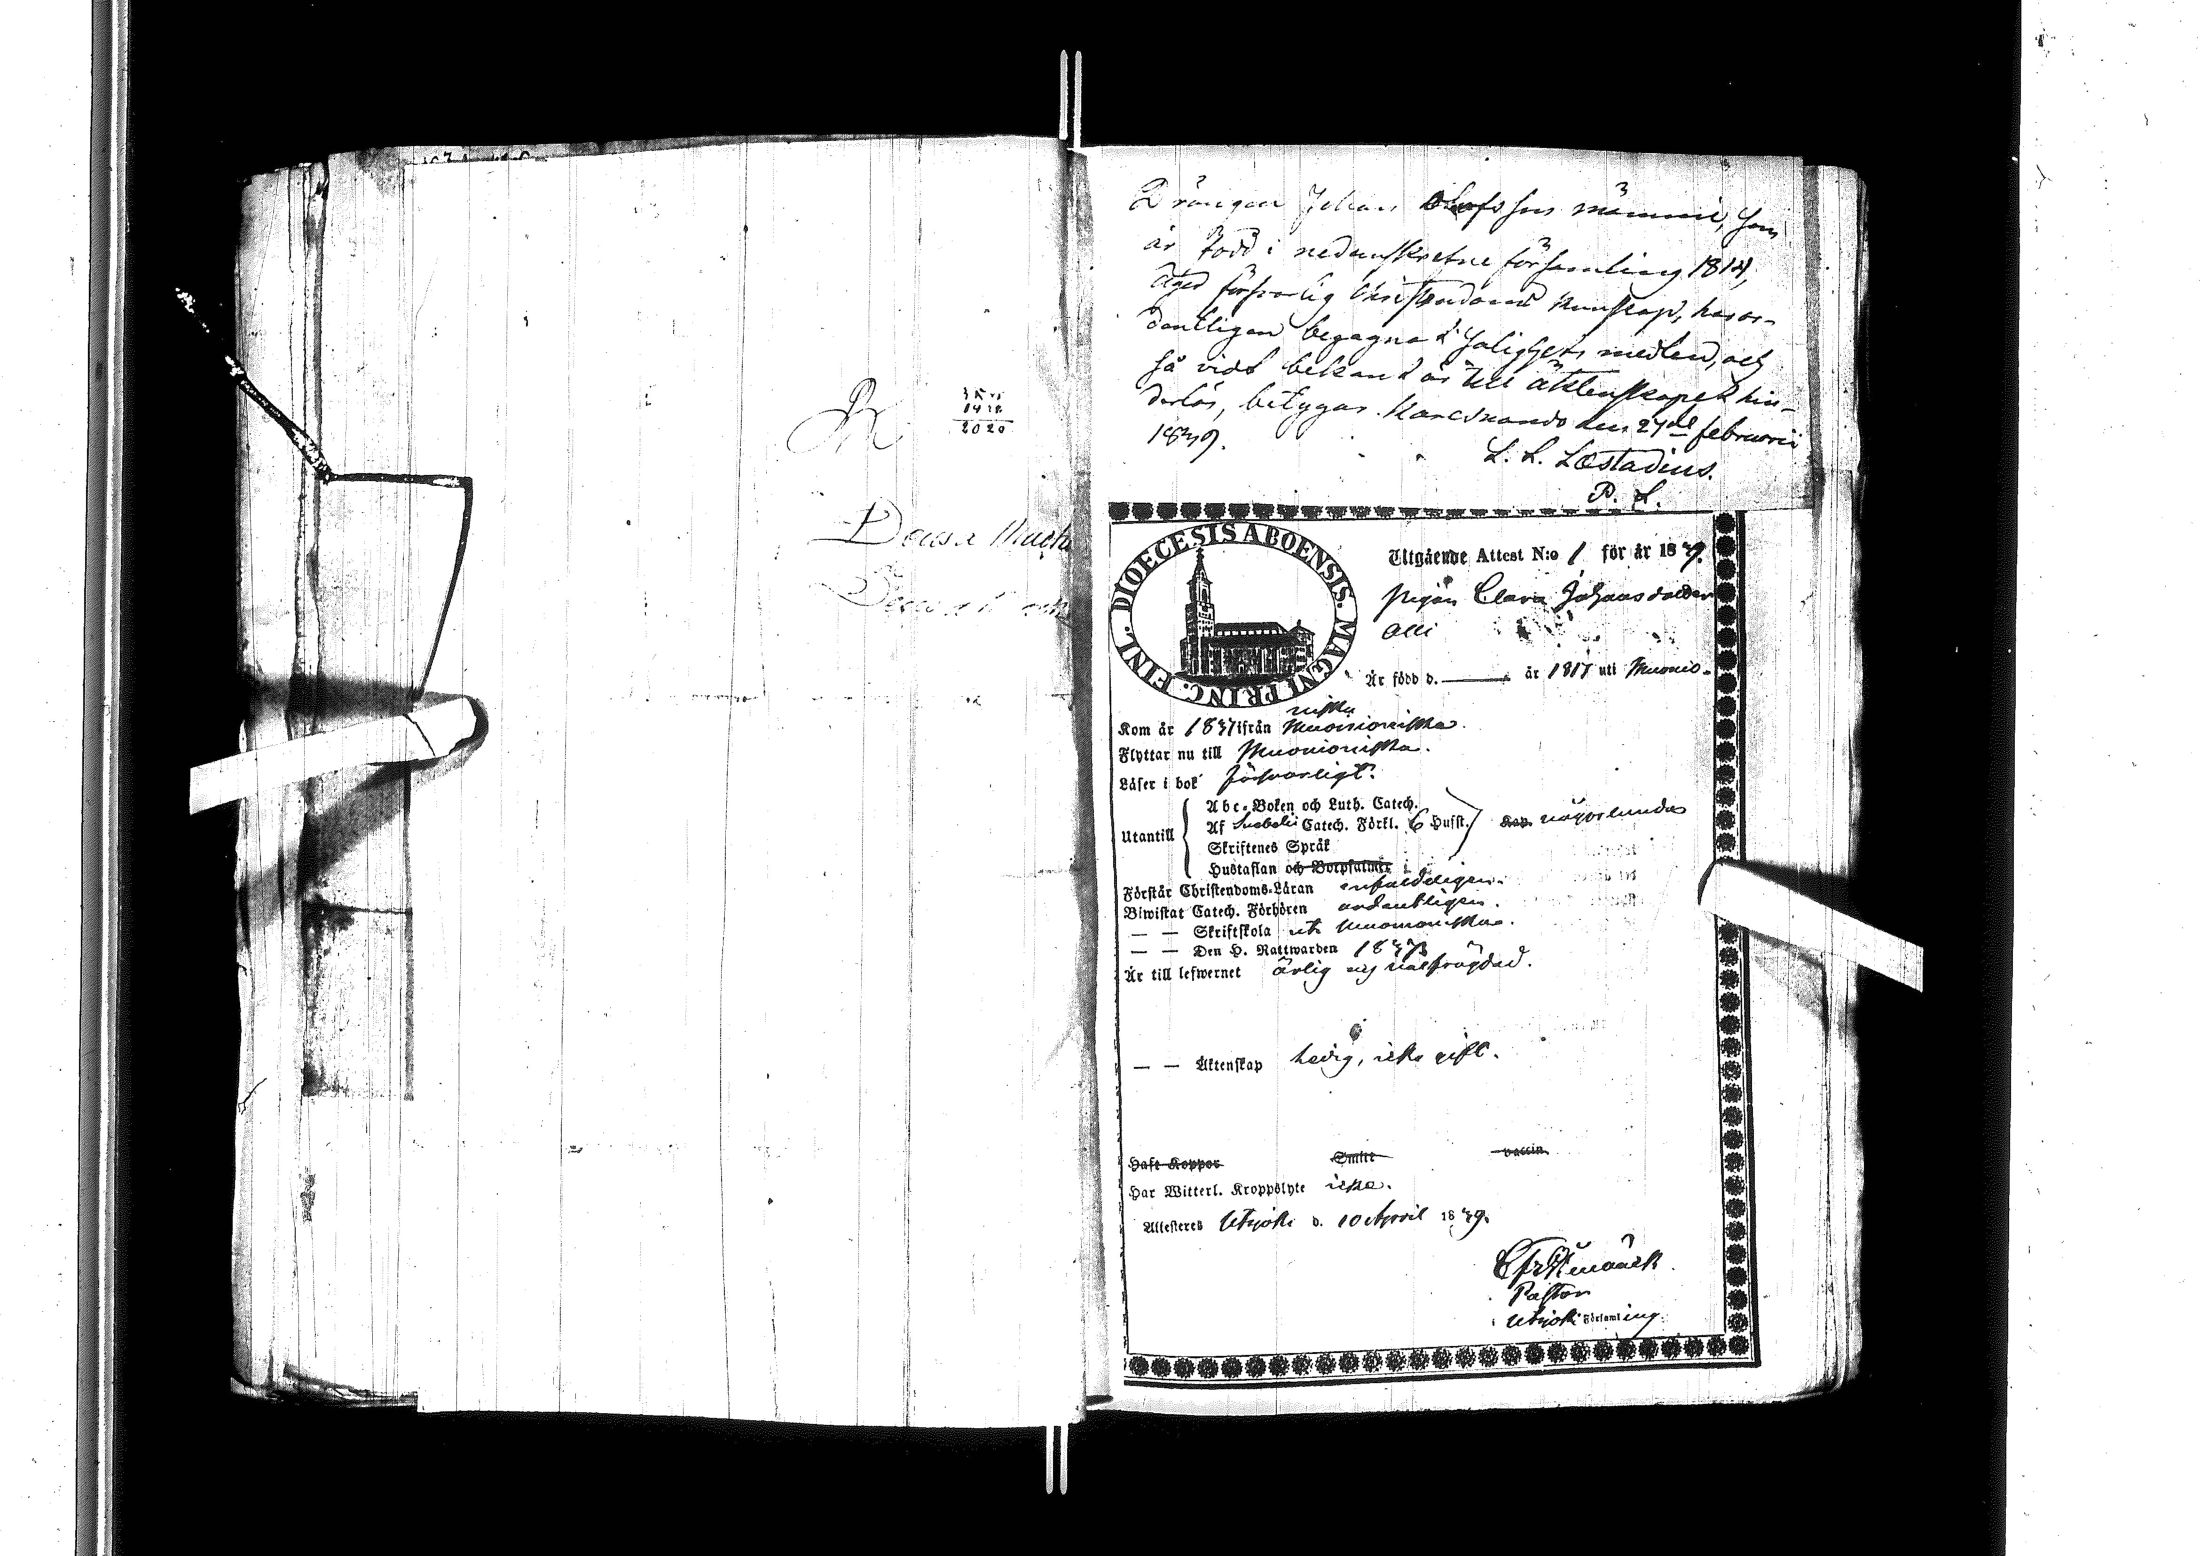 1428
2020
Drängen Johan Olofsson Mämmi, som
är född i nedanskrefne församling 1814,
äger försvarlig Christendoms kunskap, har or-
dentligen begagnat Salighets medlen, och
så vidt bekant är till äktenskapet hin-
derlös, betygar. Karesuando den 27de februarii
1839.
L. L. Læstadius.
P. L.
DIOECESIS ABOENSIS. MAGNI PRINC. FINL.
Utgående Attest N:o 1 för år 1839.
Pigan Clara Johansdotter
Alli
Är född d. ——— år 1817 uti Muonio-
niska
Kom år 1837 ifrån Muonioniska.
Flyttar nu till Muonioniska.
Läser i bok försvarligt.
Utantill
Abc-Boken och Luth. Catech.
Af Svebelii Catech. Förkl. 6 Hufst. någorlunda
Skriftenes Språk
Hustaflan och Botpsalmer
Förstår Christendoms-Läran enfaldeligen.
Biwistat Catech. Förhören ordentligen.
— — Skriftskola uti Muonioniska.
— — Den H. Nattwarden 1838
Är till lefwernet ärlig och välfrägdad.
— — Äktenskap ledig, icke gift.
Haft Koppor Smitt vaccin.
Har Witterl. Kroppslyte icke.
Attesteres Utsjoki d. 10 April 1839.
Pastor
Utsjoki Församling.